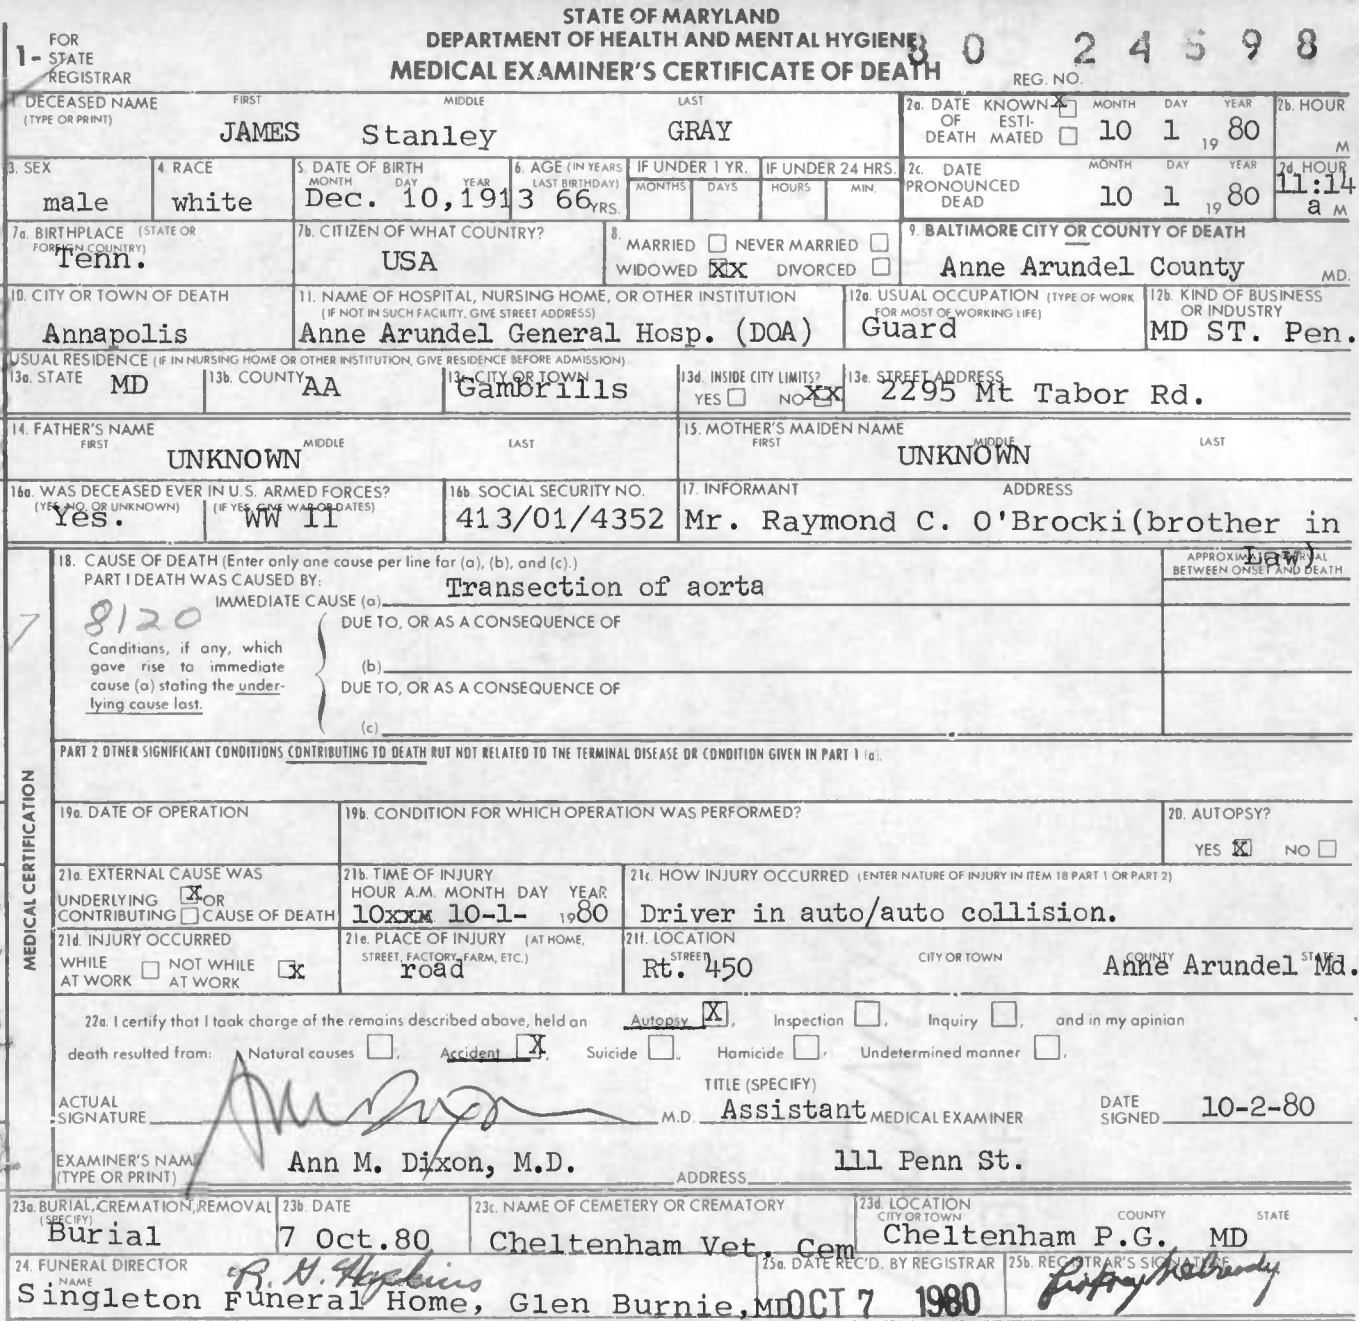 STATE OF MARYLAND
DEPARTMENT OF HEALTH AND MENTAL HYGIENE
MEDICAL EXAMINER'S CERTIFICATE OF DEATH
1- FOR STATE REGISTRAR
80 24598
REG. NO.
1. DECEASED NAME (TYPE OR PRINT) FIRST MIDDLE LAST
JAMES Stanley GRAY
2a. DATE OF DEATH KNOWN X ESTIMATED MONTH DAY YEAR 10 1 1980
2b. HOUR M
3. SEX male
4. RACE white
5. DATE OF BIRTH MONTH DAY YEAR Dec. 10,1913
6. AGE (IN YEARS LAST BIRTHDAY) 66 YRS.
IF UNDER 1 YR. MONTHS DAYS
IF UNDER 24 HRS. HOURS MIN.
2c. DATE PRONOUNCED DEAD MONTH DAY YEAR 10 1 1980
2d. HOUR 11:14 a M
7a. BIRTHPLACE (STATE OR FOREIGN COUNTRY) Tenn.
7b. CITIZEN OF WHAT COUNTRY? USA
8. MARRIED NEVER MARRIED WIDOWED XX DIVORCED
9. BALTIMORE CITY OR COUNTY OF DEATH Anne Arundel County MD.
10. CITY OR TOWN OF DEATH Annapolis
11. NAME OF HOSPITAL, NURSING HOME, OR OTHER INSTITUTION (IF NOT IN SUCH FACILITY, GIVE STREET ADDRESS) Anne Arundel General Hosp. (DOA)
12a. USUAL OCCUPATION (TYPE OF WORK FOR MOST OF WORKING LIFE) Guard
12b. KIND OF BUSINESS OR INDUSTRY MD ST. Pen.
USUAL RESIDENCE (IF IN NURSING HOME OR OTHER INSTITUTION, GIVE RESIDENCE BEFORE ADMISSION)
13a. STATE MD
13b. COUNTY AA
13c. CITY OR TOWN Gambrills
13d. INSIDE CITY LIMITS? YES NO XX
13e. STREET ADDRESS 2295 Mt Tabor Rd.
14. FATHER'S NAME FIRST MIDDLE LAST UNKNOWN
15. MOTHER'S MAIDEN NAME FIRST MIDDLE LAST UNKNOWN
16a. WAS DECEASED EVER IN U.S. ARMED FORCES? (YES, NO, OR UNKNOWN) Yes. (IF YES, GIVE WAR OR DATES) WW II
16b. SOCIAL SECURITY NO. 413/01/4352
17. INFORMANT ADDRESS Mr. Raymond C. O'Brocki(brother in Law)
MEDICAL CERTIFICATION
18. CAUSE OF DEATH (Enter only one cause per line for (a), (b), and (c).)
APPROXIMATE INTERVAL BETWEEN ONSET AND DEATH
PART I DEATH WAS CAUSED BY:
IMMEDIATE CAUSE (a) Transection of aorta
8120
DUE TO, OR AS A CONSEQUENCE OF
Conditions, if any, which gave rise to immediate cause (a) stating the underlying cause last.
(b)
DUE TO, OR AS A CONSEQUENCE OF
(c)
PART 2 OTHER SIGNIFICANT CONDITIONS CONTRIBUTING TO DEATH BUT NOT RELATED TO THE TERMINAL DISEASE OR CONDITION GIVEN IN PART 1 (a).
19a. DATE OF OPERATION
19b. CONDITION FOR WHICH OPERATION WAS PERFORMED?
20. AUTOPSY? YES X NO
21a. EXTERNAL CAUSE WAS UNDERLYING X OR CONTRIBUTING CAUSE OF DEATH
21b. TIME OF INJURY HOUR A.M. MONTH DAY YEAR 10xxM 10-1- 1980
21c. HOW INJURY OCCURRED (ENTER NATURE OF INJURY IN ITEM 18 PART 1 OR PART 2)
Driver in auto/auto collision.
21d. INJURY OCCURRED WHILE AT WORK NOT WHILE AT WORK X
21e. PLACE OF INJURY (AT HOME, STREET, FACTORY, FARM, ETC.) road
21f. LOCATION STREET CITY OR TOWN COUNTY STATE
Rt. 450 Anne Arundel Md.
22a. I certify that I took charge of the remains described above, held an Autopsy X, Inspection, Inquiry, and in my opinion
death resulted from: Natural causes, Accident X, Suicide, Homicide, Undetermined manner.
ACTUAL SIGNATURE Ann Dixon M.D.
TITLE (SPECIFY) Assistant MEDICAL EXAMINER
DATE SIGNED 10-2-80
EXAMINER'S NAME (TYPE OR PRINT) Ann M. Dixon, M.D.
ADDRESS 111 Penn St.
23a. BURIAL, CREMATION, REMOVAL (SPECIFY) Burial
23b. DATE 7 Oct.80
23c. NAME OF CEMETERY OR CREMATORY Cheltenham Vet. Cem
23d. LOCATION CITY OR TOWN COUNTY STATE Cheltenham P.G. MD
24. FUNERAL DIRECTOR NAME R. H. Hopkins
Singleton Funeral Home, Glen Burnie,MD
25a. DATE REC'D. BY REGISTRAR OCT 7 1980
25b. REGISTRAR'S SIGNATURE